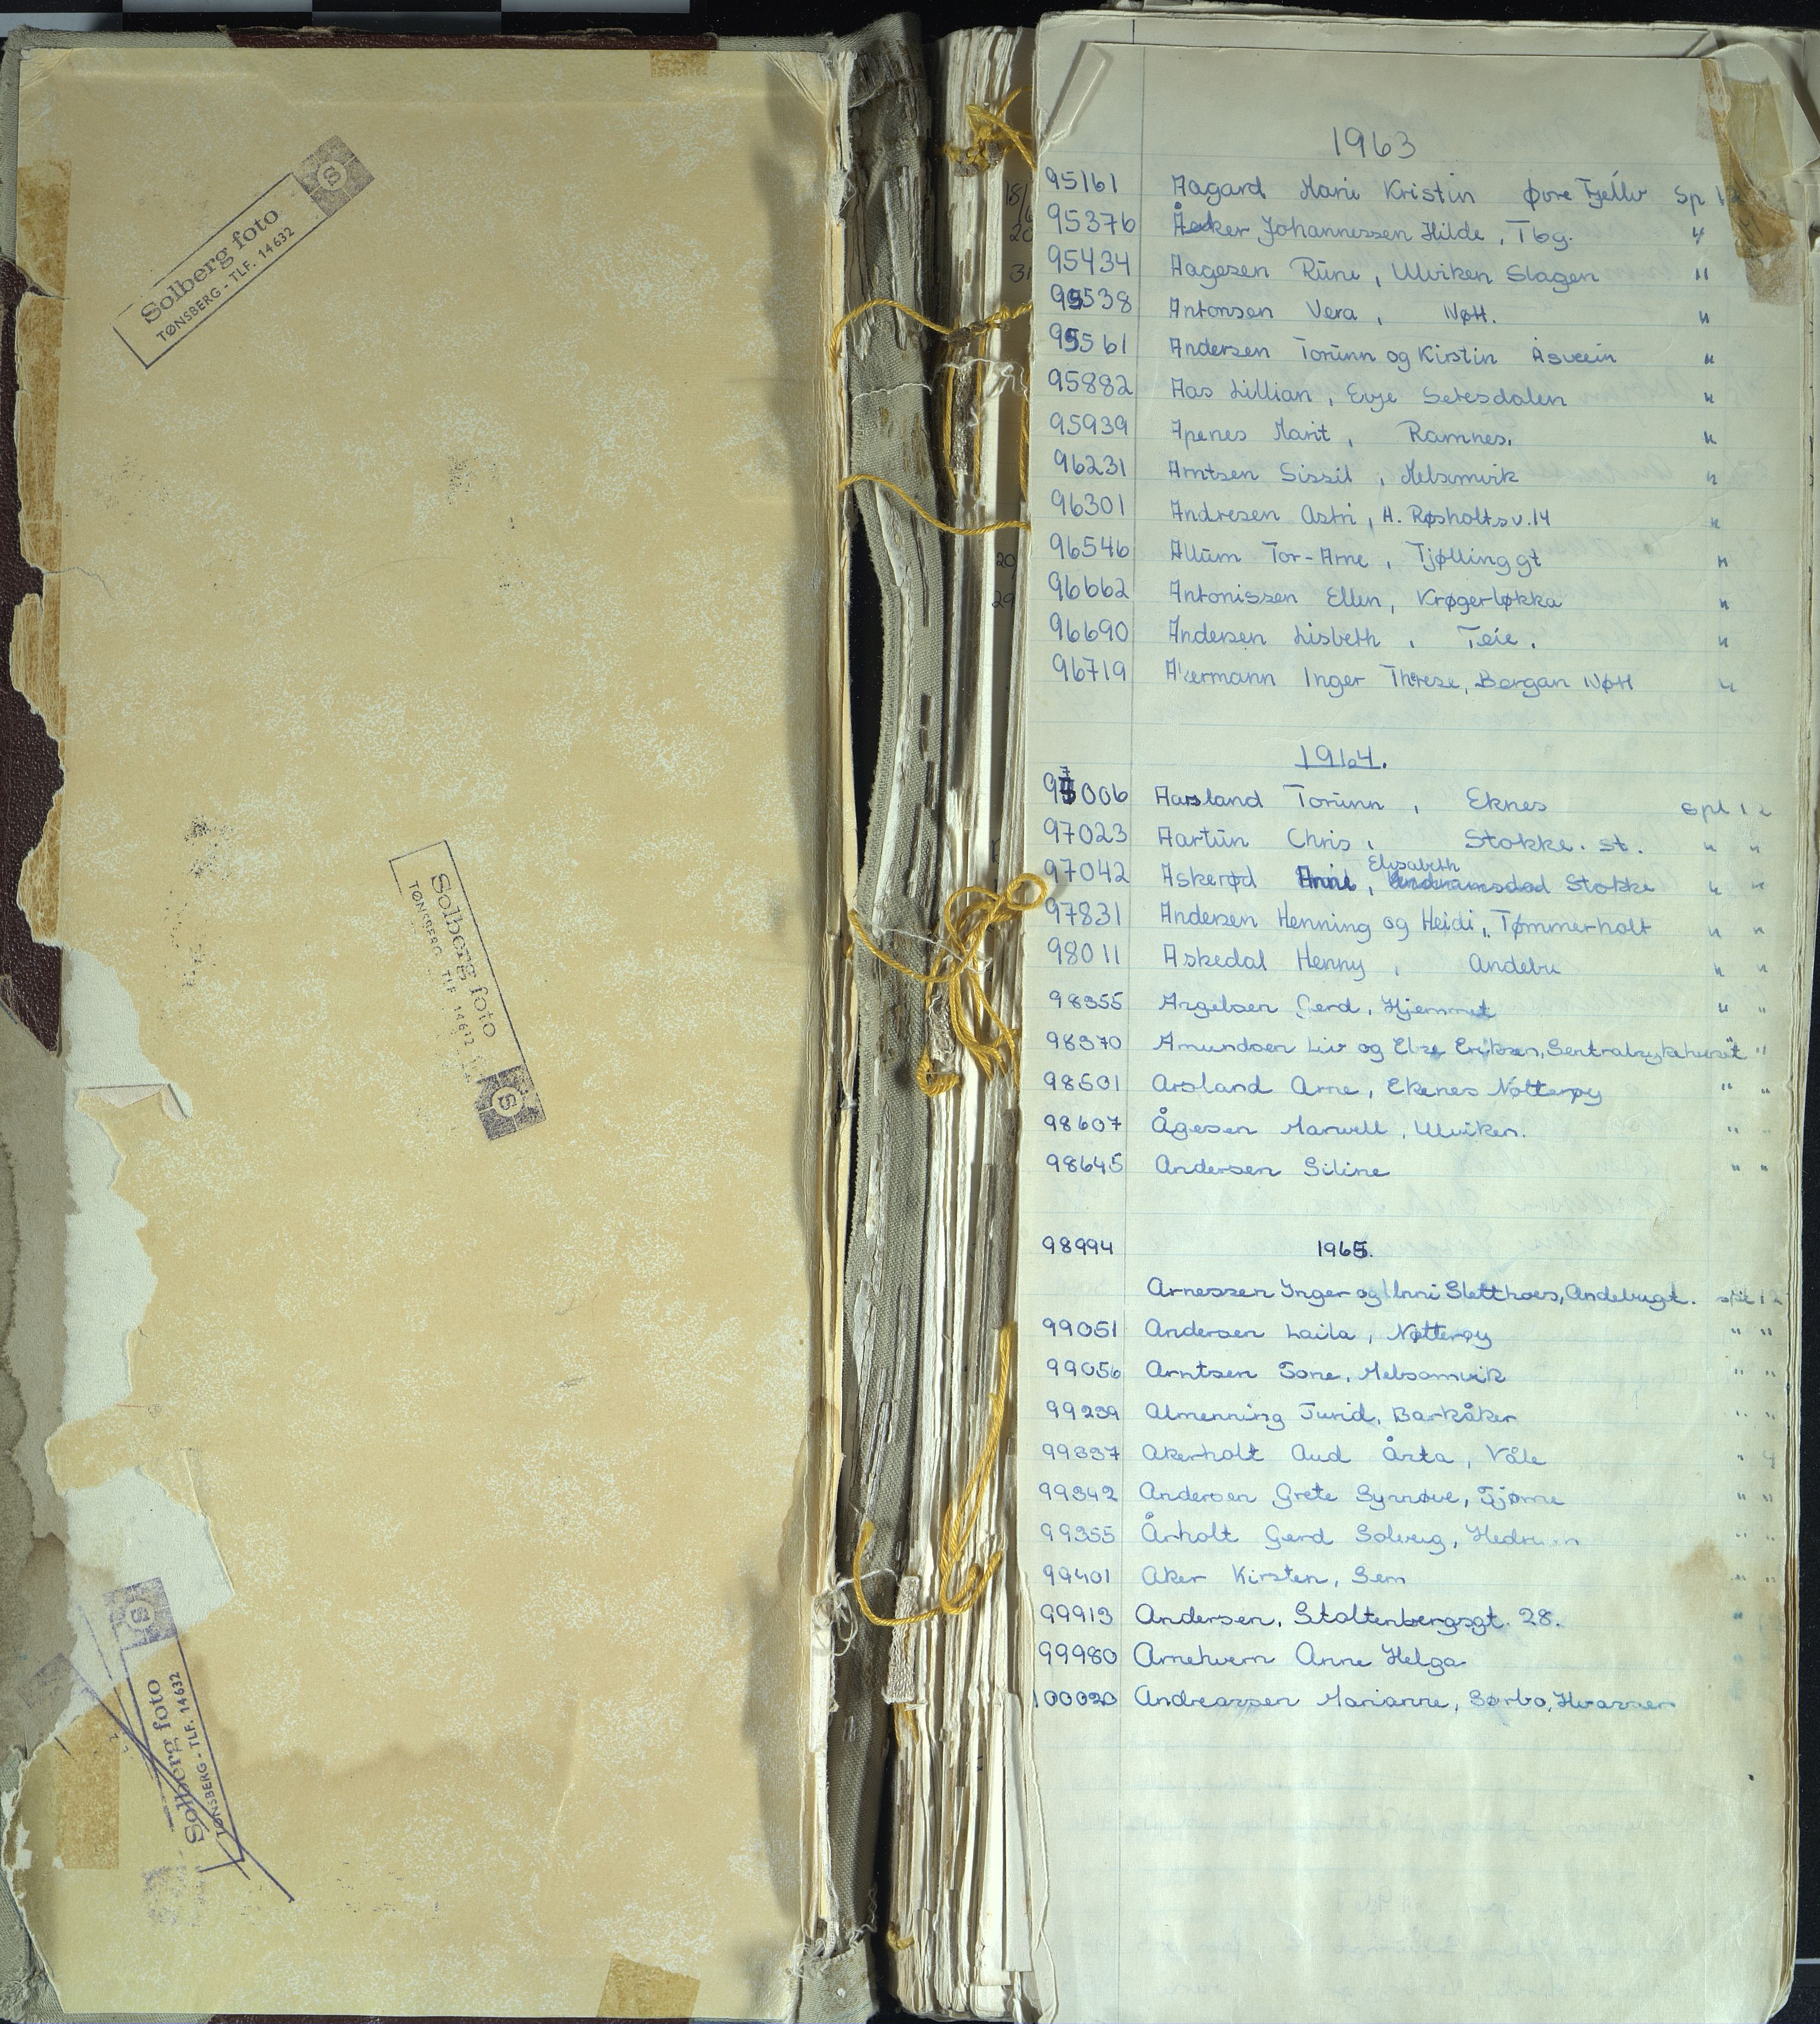 Solberg foto
TØNSBERG - TLF. 14632
S
Solberg foto
TØNSBERG TLF 14632
S
Solberg foto
TØNSBERG - TLF. 14632
S
1963
95161 Aagard Marie Kristin Øvre Fjellv Sp 12
95376 Åker Johannessen Hilde, Tbg. "
95434 Aagesen Rune, Ulviken Slagen "
95538 Antonsen Vera, Nøtt. "
95561 Andersen Torunn og Kirstin Åsveein "
95882 Aas Lillian, Evje Setesdalen "
95939 Apenes Marit, Ramnes. "
96231 Arntsen Sissil, Melsomvik "
96301 Andresen Astri, A. Røsholts v. 14 "
96546 Allum Tor-Arne, Tjølling gt "
96662 Antonissen Ellen, Krøgerløkka "
96690 Andersen Lisbeth, Teie. "
96719 Akermann Inger Therese, Bergan Nøtt "
1964.
97006 Aarsland Torunn, Eknes spl 12
97023 Aartun Chris, Stokke. st. " "
97042 Askerød Anne, Elisabeth Stokke " "
97831 Andersen Henning og Heidi, Tømmerholt " "
98011 Askedal Henny, Andebu " "
98355 Angelsen Gerd, Hjemmet " "
98370 Amundsen Liv og Else Eriksen, Sentralsykehuset " "
98501 Arsland Arne, Ekenes Nøtterøy " "
98607 Ågesen Marwell, Ulviken. " "
98645 Andersen Siline " "
98994 1965.
Arnessen Inger og Unni Sletthoes, Andebugt. spl 12
99051 Andersen Laila, Nøtterøy " "
99056 Arntsen Tone, Melsomvik " "
99239 Almenning Turid, Barkåker " "
99337 Akerholt Aud Åsta, Våle " "
99342 Andersen Grete Synnøve, Tjøme " "
99355 Århølt Gerd Solveig, Hedrum " "
99401 Aker Kirsten, Sem " "
99913 Andersen, Stoltenbergsgt. 28. "
99980 Arnehvern Anne Helga
100020 Andreassen Marianne, Sørbo, Hvasser